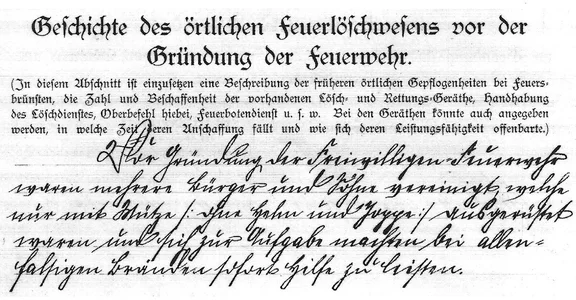 Geschichte des örtlichen Feuerlöschwesens vor der
Gründung der Feuerwehr.
(In diesem Abschnitt ist einzusetzen eine Beschreibung der früheren örtlichen Gepflogenheiten bei Feuers-
brünsten, die Zahl und Beschaffenheit der vorhandenen Lösch- und Rettungs-Geräthe, Handhabung
des Löschdienstes, Oberbefehl hiebei, Feuerbotendienst u. s. w. Bei den Geräthen könnte auch angegeben
werden, in welche Zeit deren Anschaffung fällt und wie sich deren Leistungsfähigkeit offenbarte.)
Vor Gründung der Freiwilligen Feuerwehr
waren mehrere Bürger und Söhne vereinigt, welche
nur mit Mütze /: ohne Helm und Joppe :/ ausgerüstet
waren und sich zur Aufgabe machten bei allen-
fallsigen Bränden sofort Hilfe zu leisten.